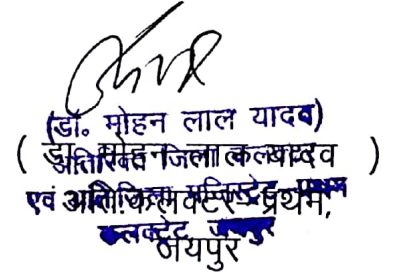 (डॉ. मोहन लाल यादव)
( डा. मोहन लाल यादव )
अतिरिक्त जिला कलक्टर
अति.कलेक्टर-प्रथम,
एवं अति.जिला मजिस्ट्रेट प्रथम
कलक्ट्रेट जयपुर
जयपुर